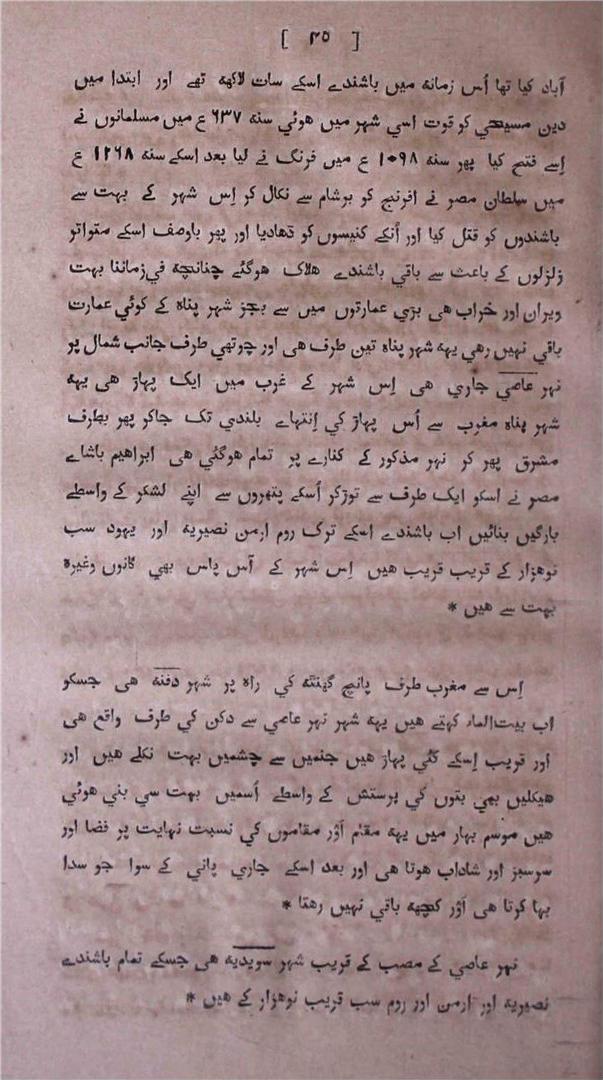 [ ٢٥ ]
آباد کیا تھا اُس زمانه میں باشندے اسکے سات لاکھه تھے اور ابتدا میں
دین مسیحي کو قوت اسي شہر میں ھوئي سنه ٦٣٧ ع میں مسلمانوں نے
اِسے فتح کیا پھر سنه ١٠٩٨ ع میں فرنگ نے لیا بعد اسکے سنه ١٢٦٨ ع
میں سلطان مصر نے افرنج کو برشام سے نکال کر اِس شہر کے بہت سے
باشندوں کو قتل کیا اور اُنکے کنیسوں کو ڈھادیا اور پھر باوصف اسکے متواتو
زلزلوں کے باعث سے باقي باشندے ھلاک ھوگئے چنانچه في زماننا بہت
ویران اور خراب ھی بڑي عمارتوں میں سے بجز شہر پناہ کے کوئي عمارت
باقي نہیں رھي یہه شہر پناہ تین طرف ھی اور چوتھي طرف جانب شمال پر
نہر عاصي جاري ھی اِس شہر کے غرب میں ایک پہاڑ ھی یہه
شہر پناہ مغرب سے اُس پہاڑ کي اِنتہاے بلندي تک جاکو پھر بطرف
مشرق پھر کر نہر مذکور کے کنارے پر تمام ھوگئي ھی ابراھیم باشاے
مصر نے اسکو ایک طرف سے توڑکر اُسکے پتھروں سے اپنے لشکر کے واسطے
بارگیں بنائیں اب باشندے اسکے ترک روم ارمن نصیریه اور یہود سب
نوھزار کے قریب قریب ھیں اِس شہر کے آس پاس بھي گانوں وغیرہ
بہت سے ھیں *
اِس سے مغرب طرف پانچ گھنٹه کي راہ پر شہر دفنه ھی جسکو
اب بیت الماء کہتے ھیں یہه شہر نہر عاصي سے دکن کي طرف واقع ھی
اور قریب اِسکے کئي پہاڑ ھیں جنمیں سے چشمیں بہت نکلے ھیں اور
ھیکلیں بھي بتوں کي پرستش کے واسطے اُسمیں بہت سي بني ھوئي
ھیں موسم بہار میں یہه مقام اَوْر مقاموں کي نسبت نہایت پر فضا اور
سرسبز اور شاداب ھوتا ھی اور بعد اسکے جاري پاني کے سوا جو سدا
بہا کرتا ھی اَوْر کچھه باقي نہیں رھتا *
نہر عاصي کے مصب کے قریب شہر سویدیه ھی جسکے تمام باشندے
نصیریه اور ارمن اور روم سب قریب نوھزار کے ھیں *